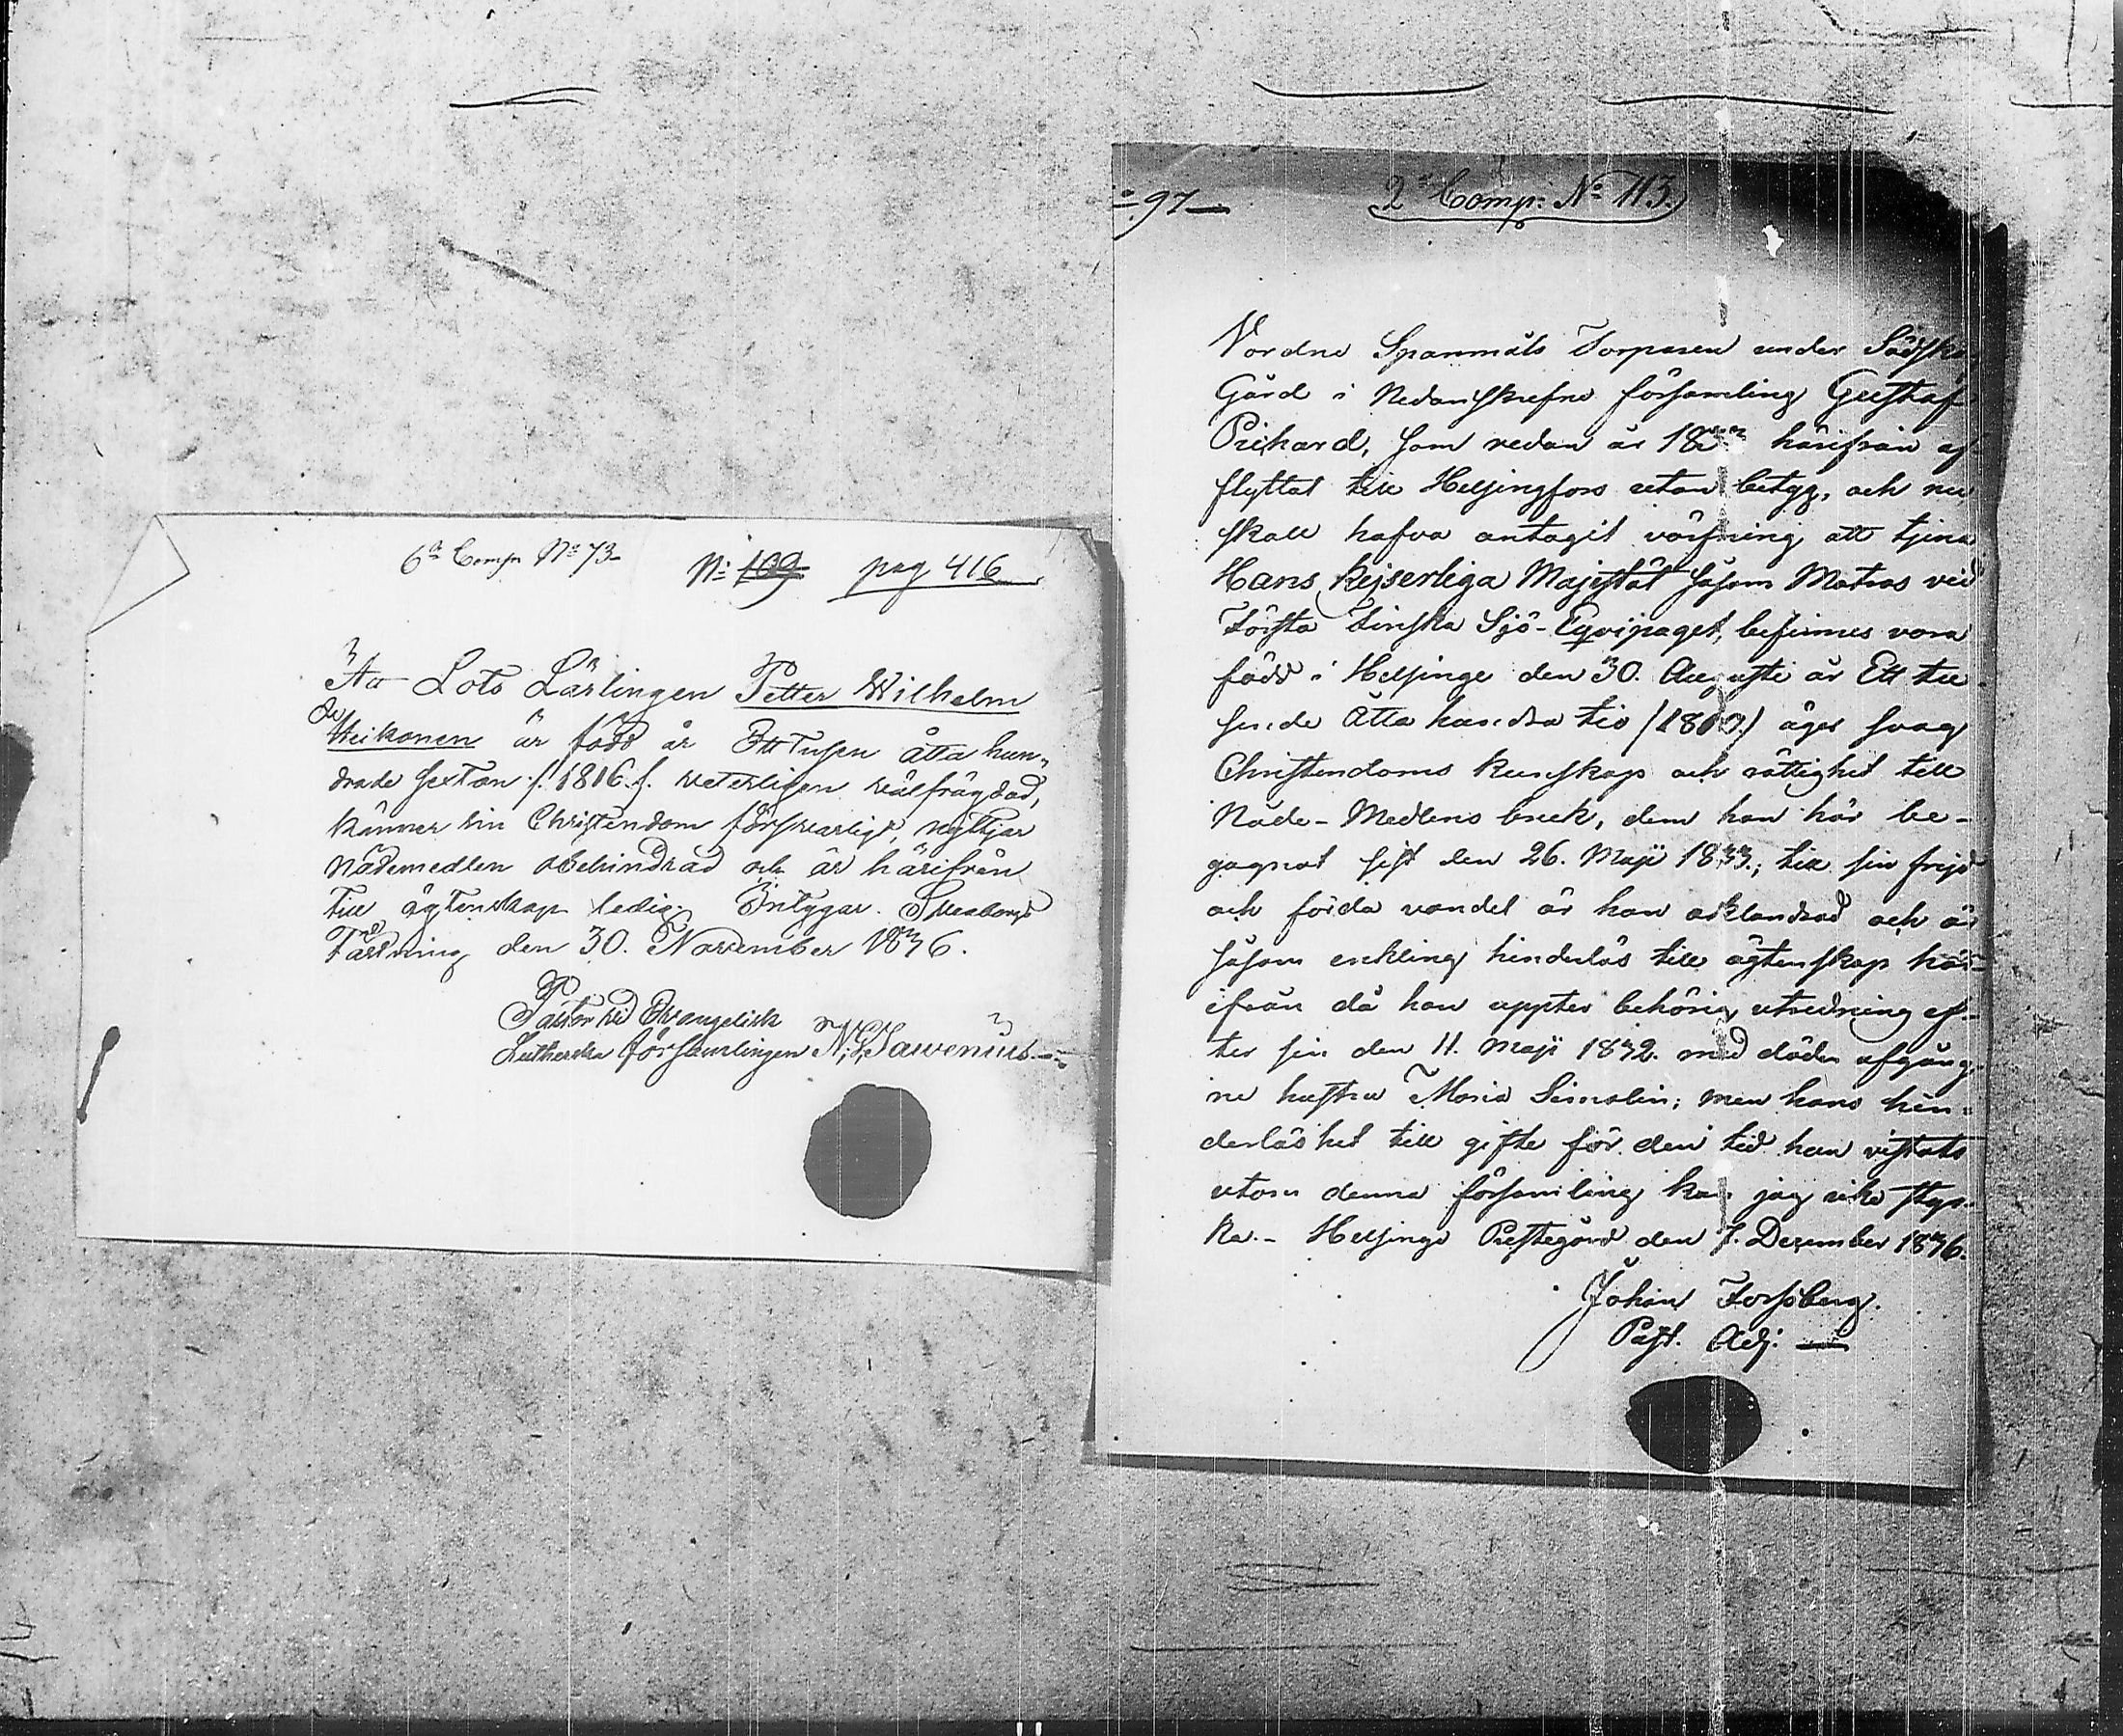 6ta Comp No 73
No 109 pag 416
Att Lots Lärlingen Petter Wilhelm
Heikonen är född år Ett Tusen åtta hun„
drade sexton /:1816:/ veterligen välfrägdad,
känner sin Christendom försvarligt, nyttjar
nådemedlen obehindrad och är härifrån
till ägtenskap ledig. Intygar. Sveaborgs
Fästning den 30. November 1836.
Pastor vid Evangelisk
Lutherska församlingen
97
2a Comp: No 113.
Vordne Spanmåls Torparen under
Gård i Nedanskrefne församling Gustaf
Prihard, som redan år härifrån af-
flyttat till Helsingfors utan betyg, och nu
skall hafva antagit värfning att tjena
Hans Kejserliga Majestät såsom Matros vid
Första Finska Sjö-Eqvipaget, befinnes vara
född i Helsinge den 30. Augusti år Ett tu-
sende Åtta hundra tio /1810/ äger svag
Christendoms kunskap och rättighet till
Nåde-Medlens bruk, dem han här be-
gagnat sist den 26. Maji 1833.; till sin frejd
och förda vandel är han oklandrad och är
såsom enkling hinderlös till ägtenskap här-
ifrån då han uppter behörig utredning ef-
ter sin den 11. Maji 1832. med döden afgång-
ne hustru Maria Simolin; men hans hin-
derlöshet till gifte för den tid han vistats
utom denna församling kan jag icke styr-
ka.- Helsinge Prestegård den 7. December 1836.
Johan Forssberg.
Past. Adj.